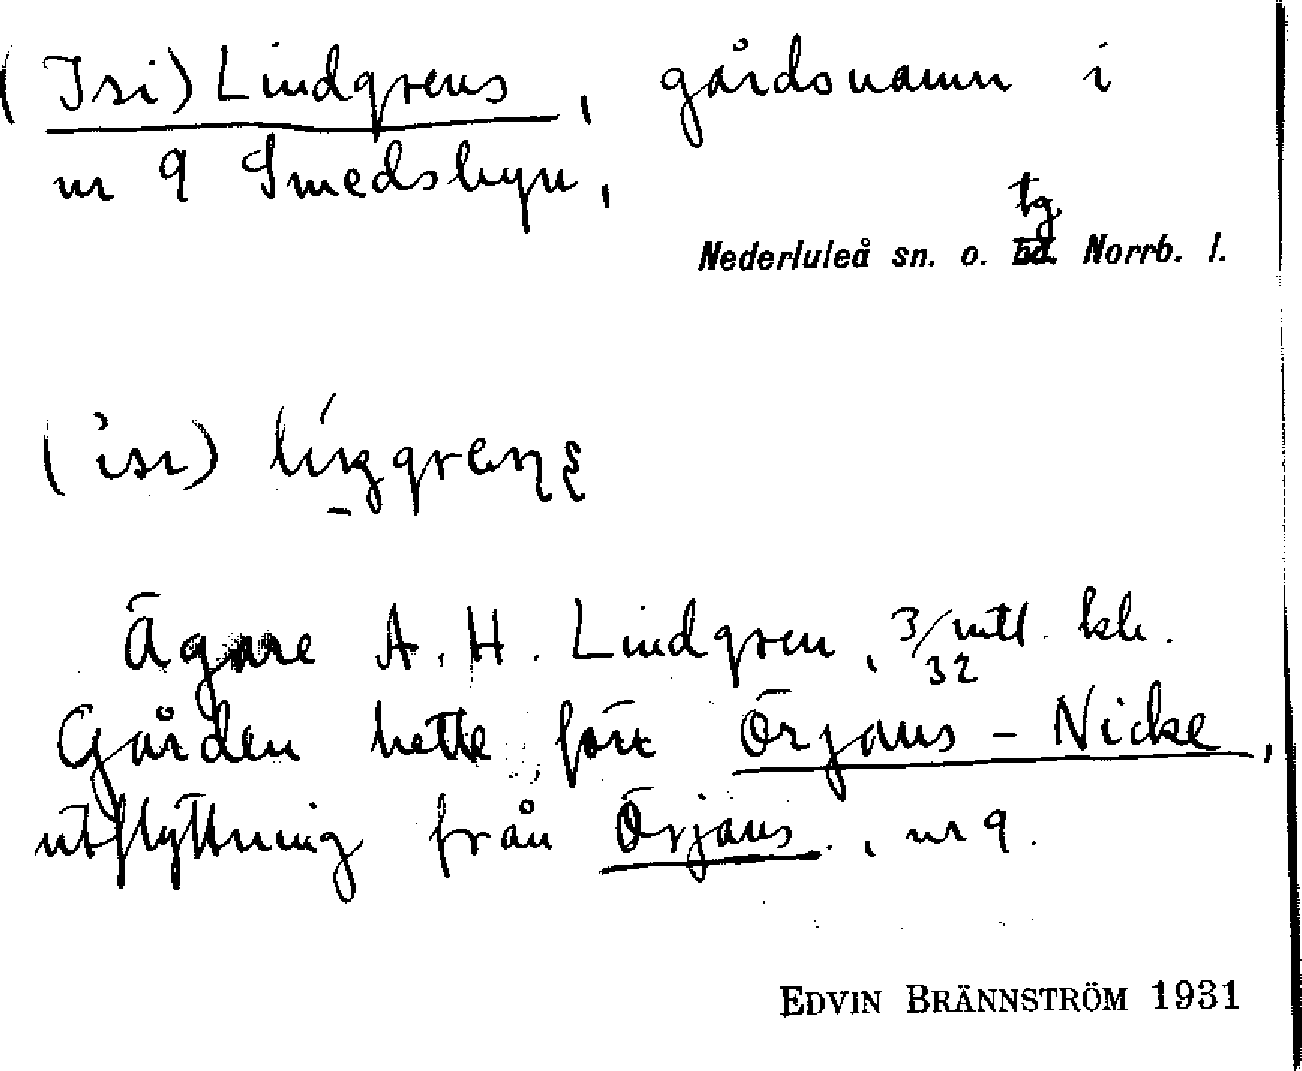 (Isi) Lindgrens, gårdsnamn i
nr 9 Smedsbyn,
tg
Nederluleå sn. o. Norrb. l.
Ägare A. H. Lindgren, 3/32 mtl. kh.
Gården hette förr Örjans-Nicke,
utflyttning från Örjans., nr 9.
EDVIN BRÄNNSTRÖM 1931